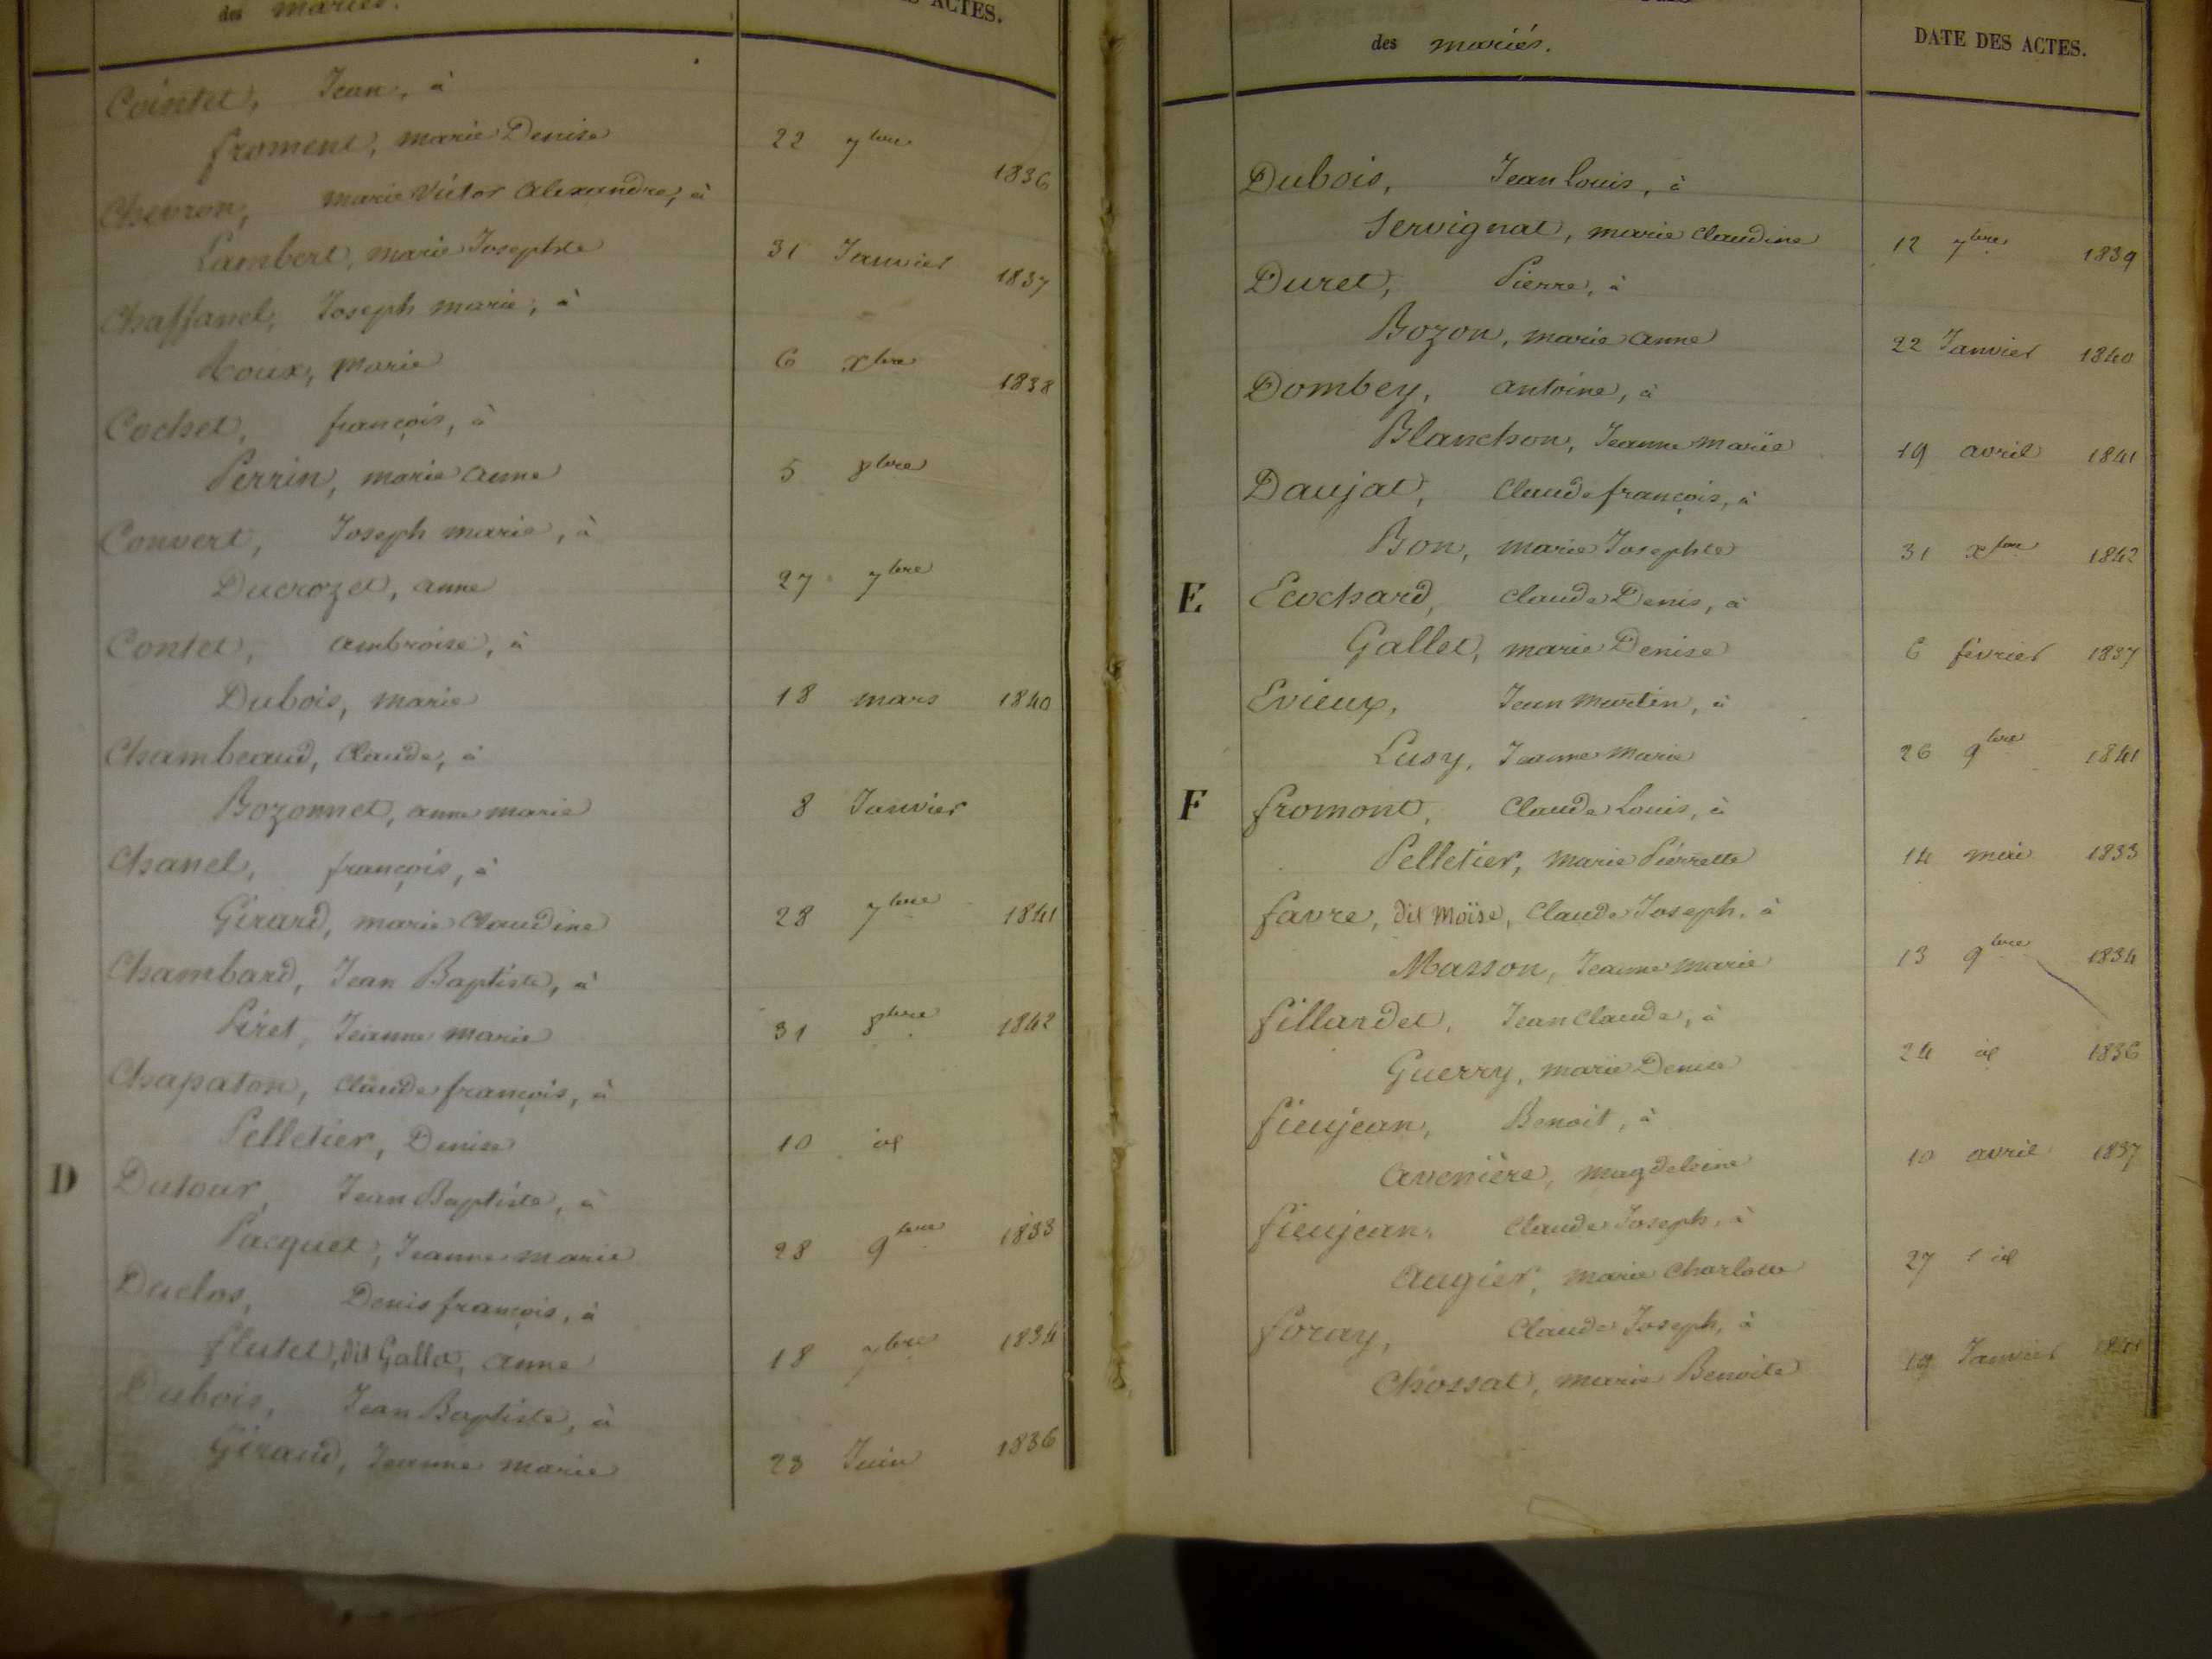 des mariés.
ES ACTES.
Cointet, Jean, à
froment, marie Denise 22 7bre 1836
Chevron, marie Victor alexandre, à
Lambert, marie Josephte 31 Janvier 1837
Chaffanel, Joseph marie, à
Roux, marie 6 xbre 1838
Cochet, françois, à
Perrin, marie anne 5 8bre
Convert, Joseph marie, à
Ducrozet, anne 27 7bre
Contet, ambroise, à
Dubois, marie 18 mars 1840
Chambeaud, Claude, à
Bozonnet, anne marie 8 Janvier
Chanel, françois, à
Girard, marie Claudine 28 7bre 1841
Chambard, Jean Baptiste, à
Piret, Jeanne marie 31 8bre 1842
Chapaton, Claude françois, à
Pelletier, Denise 10 id
D Dutour, Jean Baptiste, à
Pacquet, Jeanne marie 28 9bre 1833
Duclos, Denis françois, à
flutet, dit Galla, anne 18 7bre 1834
Dubois, Jean Baptiste, à
Giraud, Jeanne marie 23 Juin 1836
des mariés.
DATE DES ACTES.
Dubois, Jean Louis, à
Servignat, marie Claudine 12 7bre 1839
Duret, Pierre, à
Bozon, marie anne 22 Janvier 1840
Dombey, antoine, à
Blanchon, Jeanne marie 19 avril 1841
Daujat, Claude françois, à
Bon, marie Josephte 31 xbre 1842
E Ecochard, Claude Denis, à
Gallet, marie Denise 6 février 1837
Evieux, Jean Martin, à
Lusy, Jeanne Marie 26 9bre 1841
F fromont, Claude Louis, à
Pelletier, Marie Pierrette 14 mai 1833
favre, dit Moïse, Claude Joseph, à
Masson, Jeanne marie 13 9bre 1834
fillardet, Jean Claude, à
Guerry, marie Denise 24 id 1836
fieujean, Benoit, à
avenière, magdeleine 10 avril 1837
fieujean, Claude Joseph, à
augier, marie Charlotte 27 id
foray, Claude Joseph, à
Chossat, marie Benoite 19 Janvier 1841